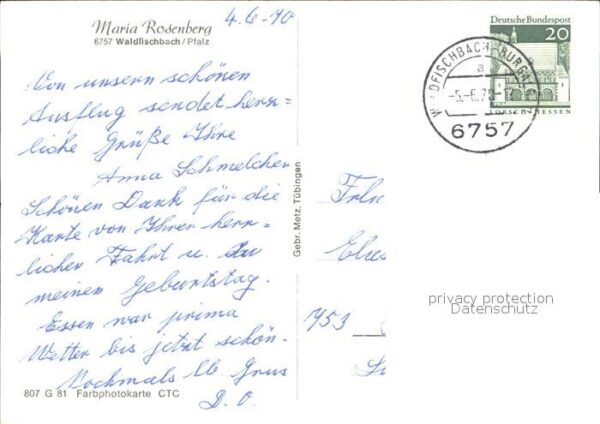 Maria Rosenberg
6757 Waldfischbach / Pfalz
4.6-70
Von unsern schönen
Ausflug sendet herr=
liche Grüße Ihre
Anna Schmelcher
Schönen Dank für die
Karte von Ihrer herr=
lichen Fahrt u. zu
meinen Geburtstag.
Essen war prima
Wetter bis jetzt schön.
Nochmals lb. Grus
D. O.
807 G 81 Farbphotokarte CTC
Gebr. Metz, Tübingen
Deutsche Bundespost
20
LORSCH-HESSEN
WALDFISCHBACH-BURGA
a
-5.-6.70-1
6757
Frln
753
privacy protection
Datenschutz